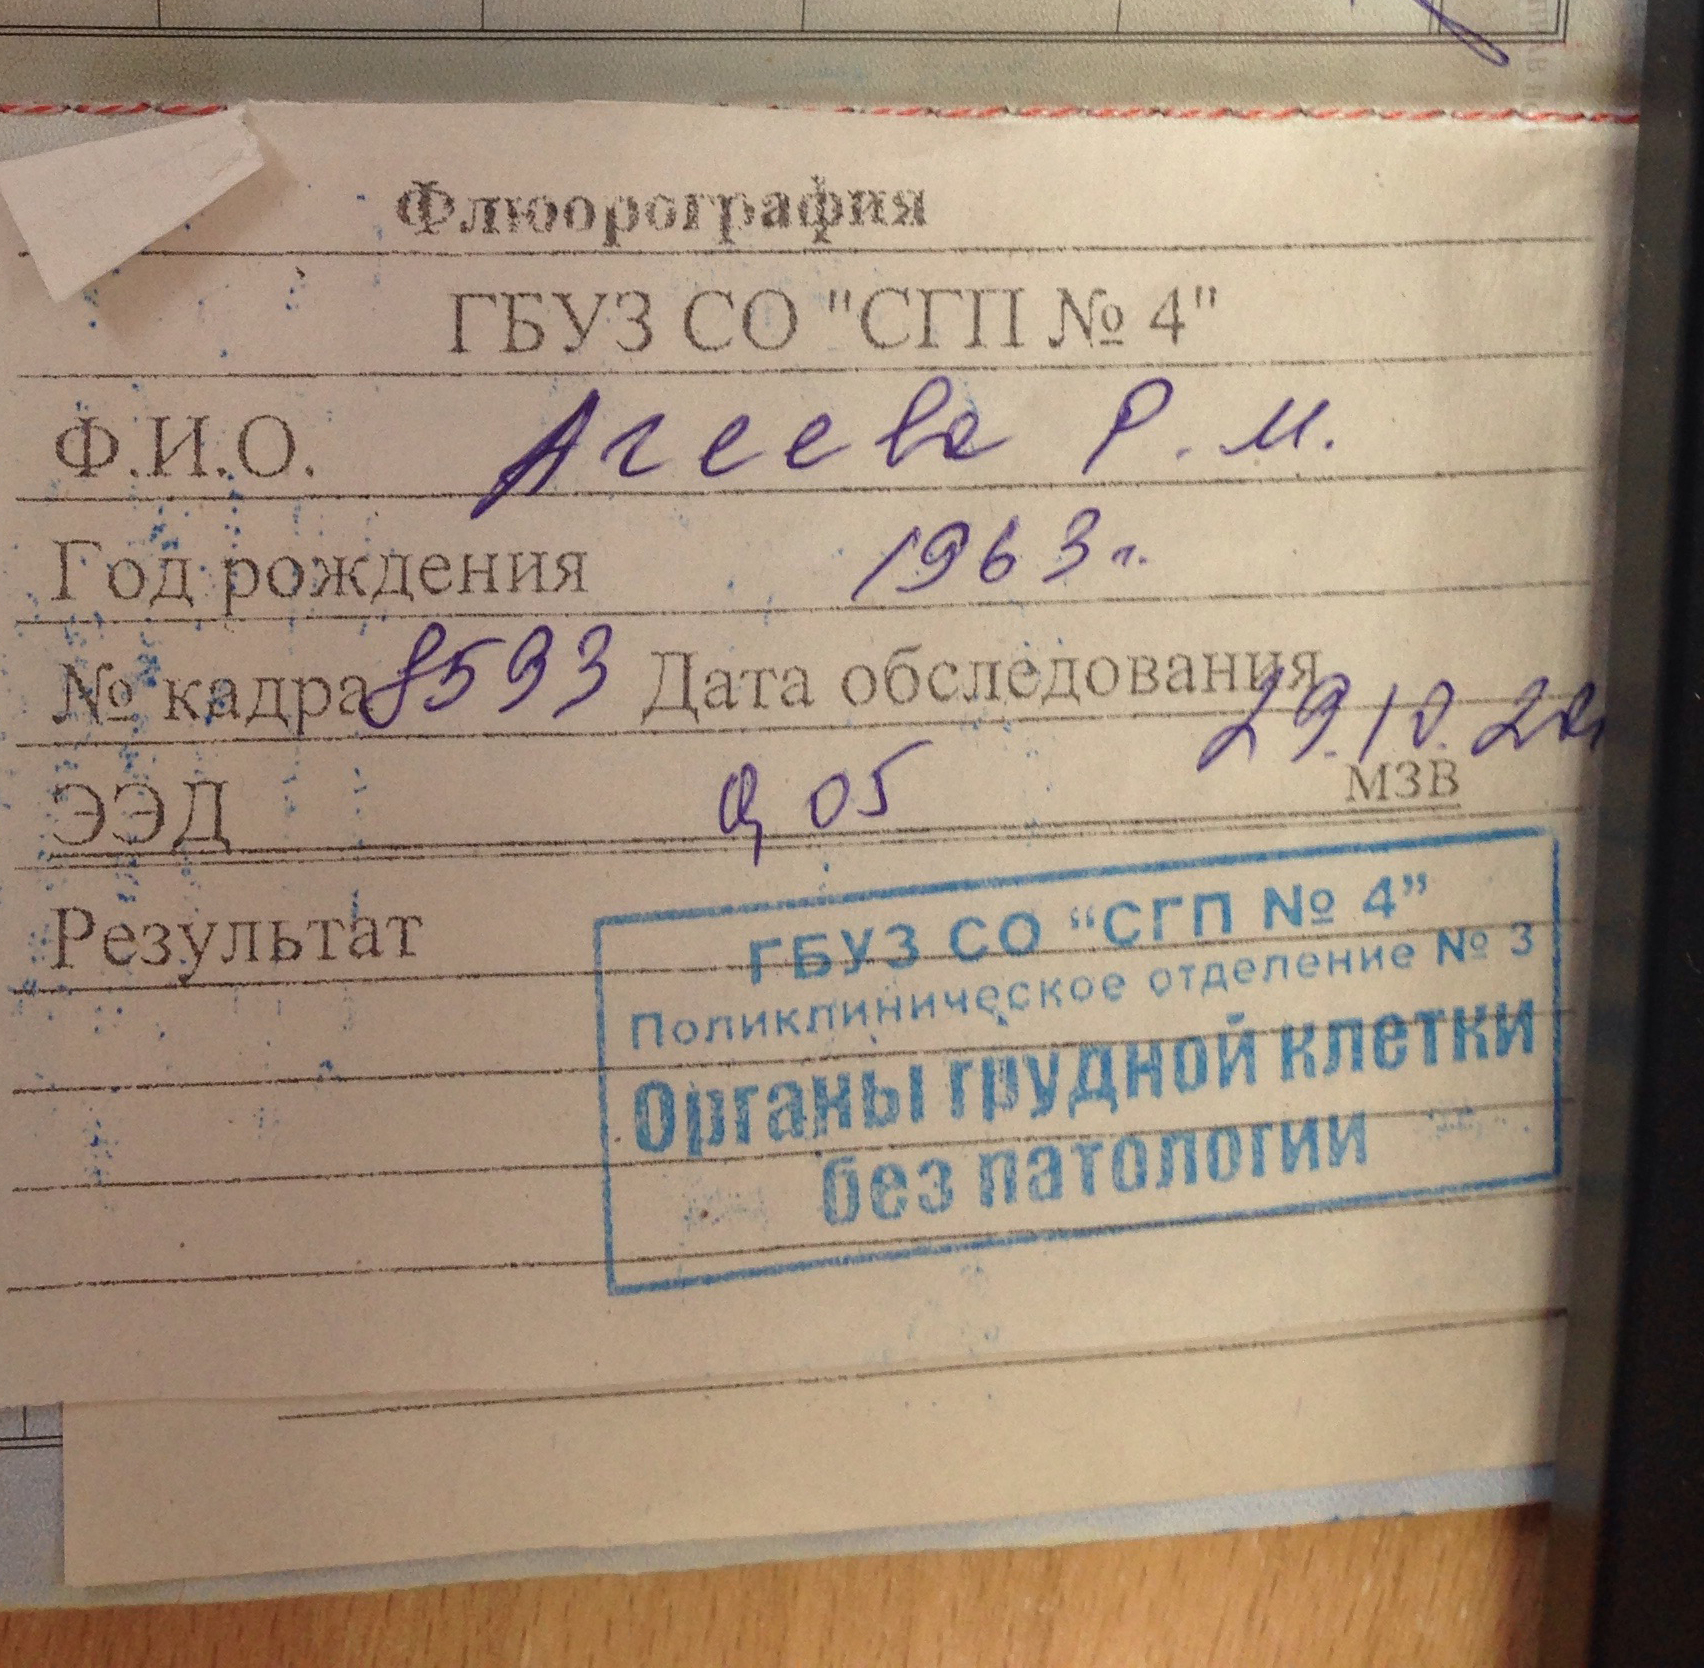 Флюорография
ГБУЗ СО "СГП № 4"
Ф.И.О. Агеева Р. М.
Год рождения 1963 г.
№ кадра 8593 Дата обследования 29.10.
ЭЭД 0,05 МЗВ
Результат
ГБУЗ СО “СГП № 4”
Поликлиническое отделение № 3
Органы грудной клетки
без патологии